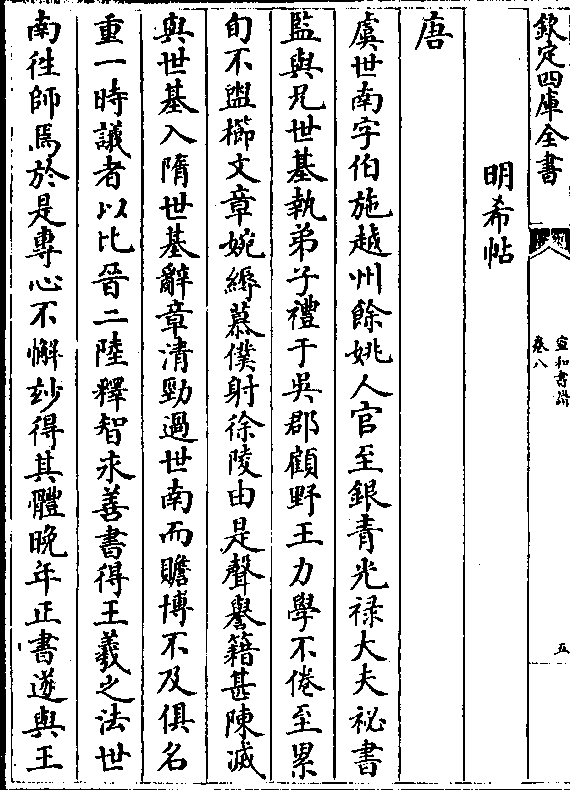 欽定四庫全書
宣和書譜
卷八
五
明希帖
唐
虞世南字伯施越州餘姚人官至銀青光禄大夫祕書
監與兄世基執弟子禮于吳郡顧野王力學不倦至累
旬不盥櫛文章婉縟慕僕射徐陵由是聲譽籍甚陳滅
與世基入隋世基辭章清勁過世南而贍博不及俱名
重一時議者以比晉二陸釋智永善書得王羲之法世
南徃師焉於是專心不懈妙得其體晚年正書遂與王